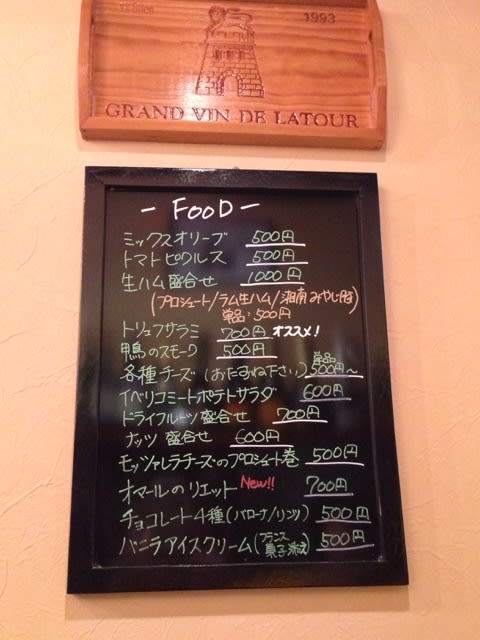 1993
GRAND VIN DE LATOUR
- FOOD -
ミックスオリーブ 500円
トマトピクルス 500円
生ハム盛合せ 1000円
(プロシュート/ラム生ハム/湘南みやじ豚)
単品:500円
トリュフサラミ 700円 オススメ!
鴨のスモーク 500円
各種チーズ (おたずね下さい) 単品 500円~
イベリコミートポテトサラダ 600円
ドライフルーツ盛合せ 700円
ナッツ 盛合せ 600円
モッツァレラチーズのプロシュート巻 500円
オマールのリエット New!! 700円
チョコレート4種(バローナ/リンツ) 500円
バニラアイスクリーム(フランス菓子添え) 500円